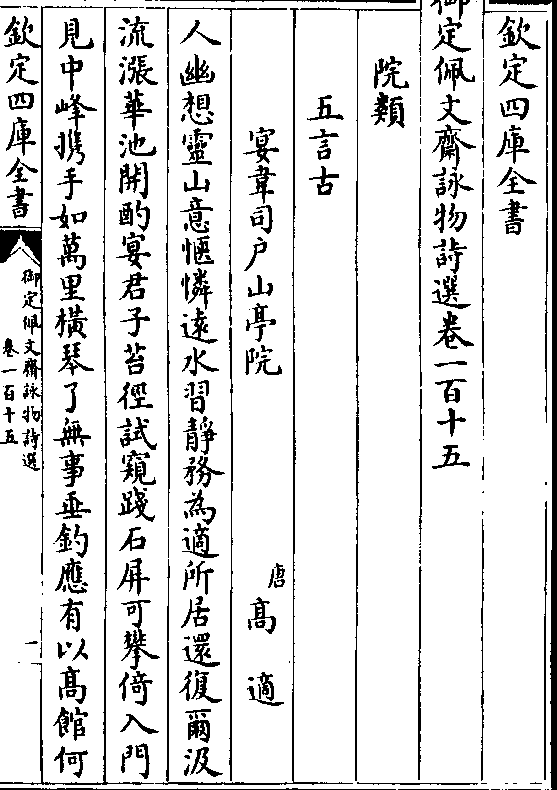 欽定四庫全書
御定佩文齋詠物詩選卷一百十五
院類
五言古
宴韋司户山亭院
唐
高適
人幽想靈山意愜憐遠水習靜務為適所居還復爾汲
流漲華池開酌宴君子苔徑試窺踐石屏可攀倚入門
見中峰携手如萬里橫琴了無事垂釣應有以高館何
欽定四庫全書
御定佩文齋詠物詩選
卷一百十五
一